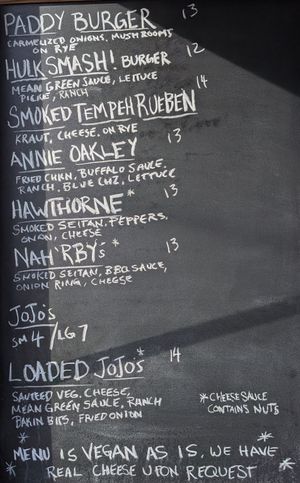 PADDY BURGER 13
CARMELIZED ONIONS, MUSHROOMS
ON RYE
HULK SMASH! BURGER 12
MEAN GREEN SAUCE, LETTUCE
PICKE, RANCH
SMOKED TEMPEH RUEBEN 14
KRAUT, CHEESE, ON RYE
ANNIE OAKLEY 13
FRIED CHKN, BUFFALO SAUCE,
RANCH, BLUE CHZ, LETTUCE
HAWTHORNE* 13
SMOKED SEITAN, PEPPERS,
ONION, CHEESE
NAH 'RBY'S* 13
SMOKED SEITAN, BBQ SAUCE,
ONION RING, CHEESE
JOJO'S
SM 4/LG 7
LOADED JOJO'S* 14
SAUTEED VEG. CHEESE,
MEAN GREEN SAUCE, RANCH
BAKIN BITS, FRIED ONION
*CHEESE SAUCE
CONTAINS NUTS
* MENU IS VEGAN AS IS. WE HAVE
REAL CHEESE UPON REQUEST *